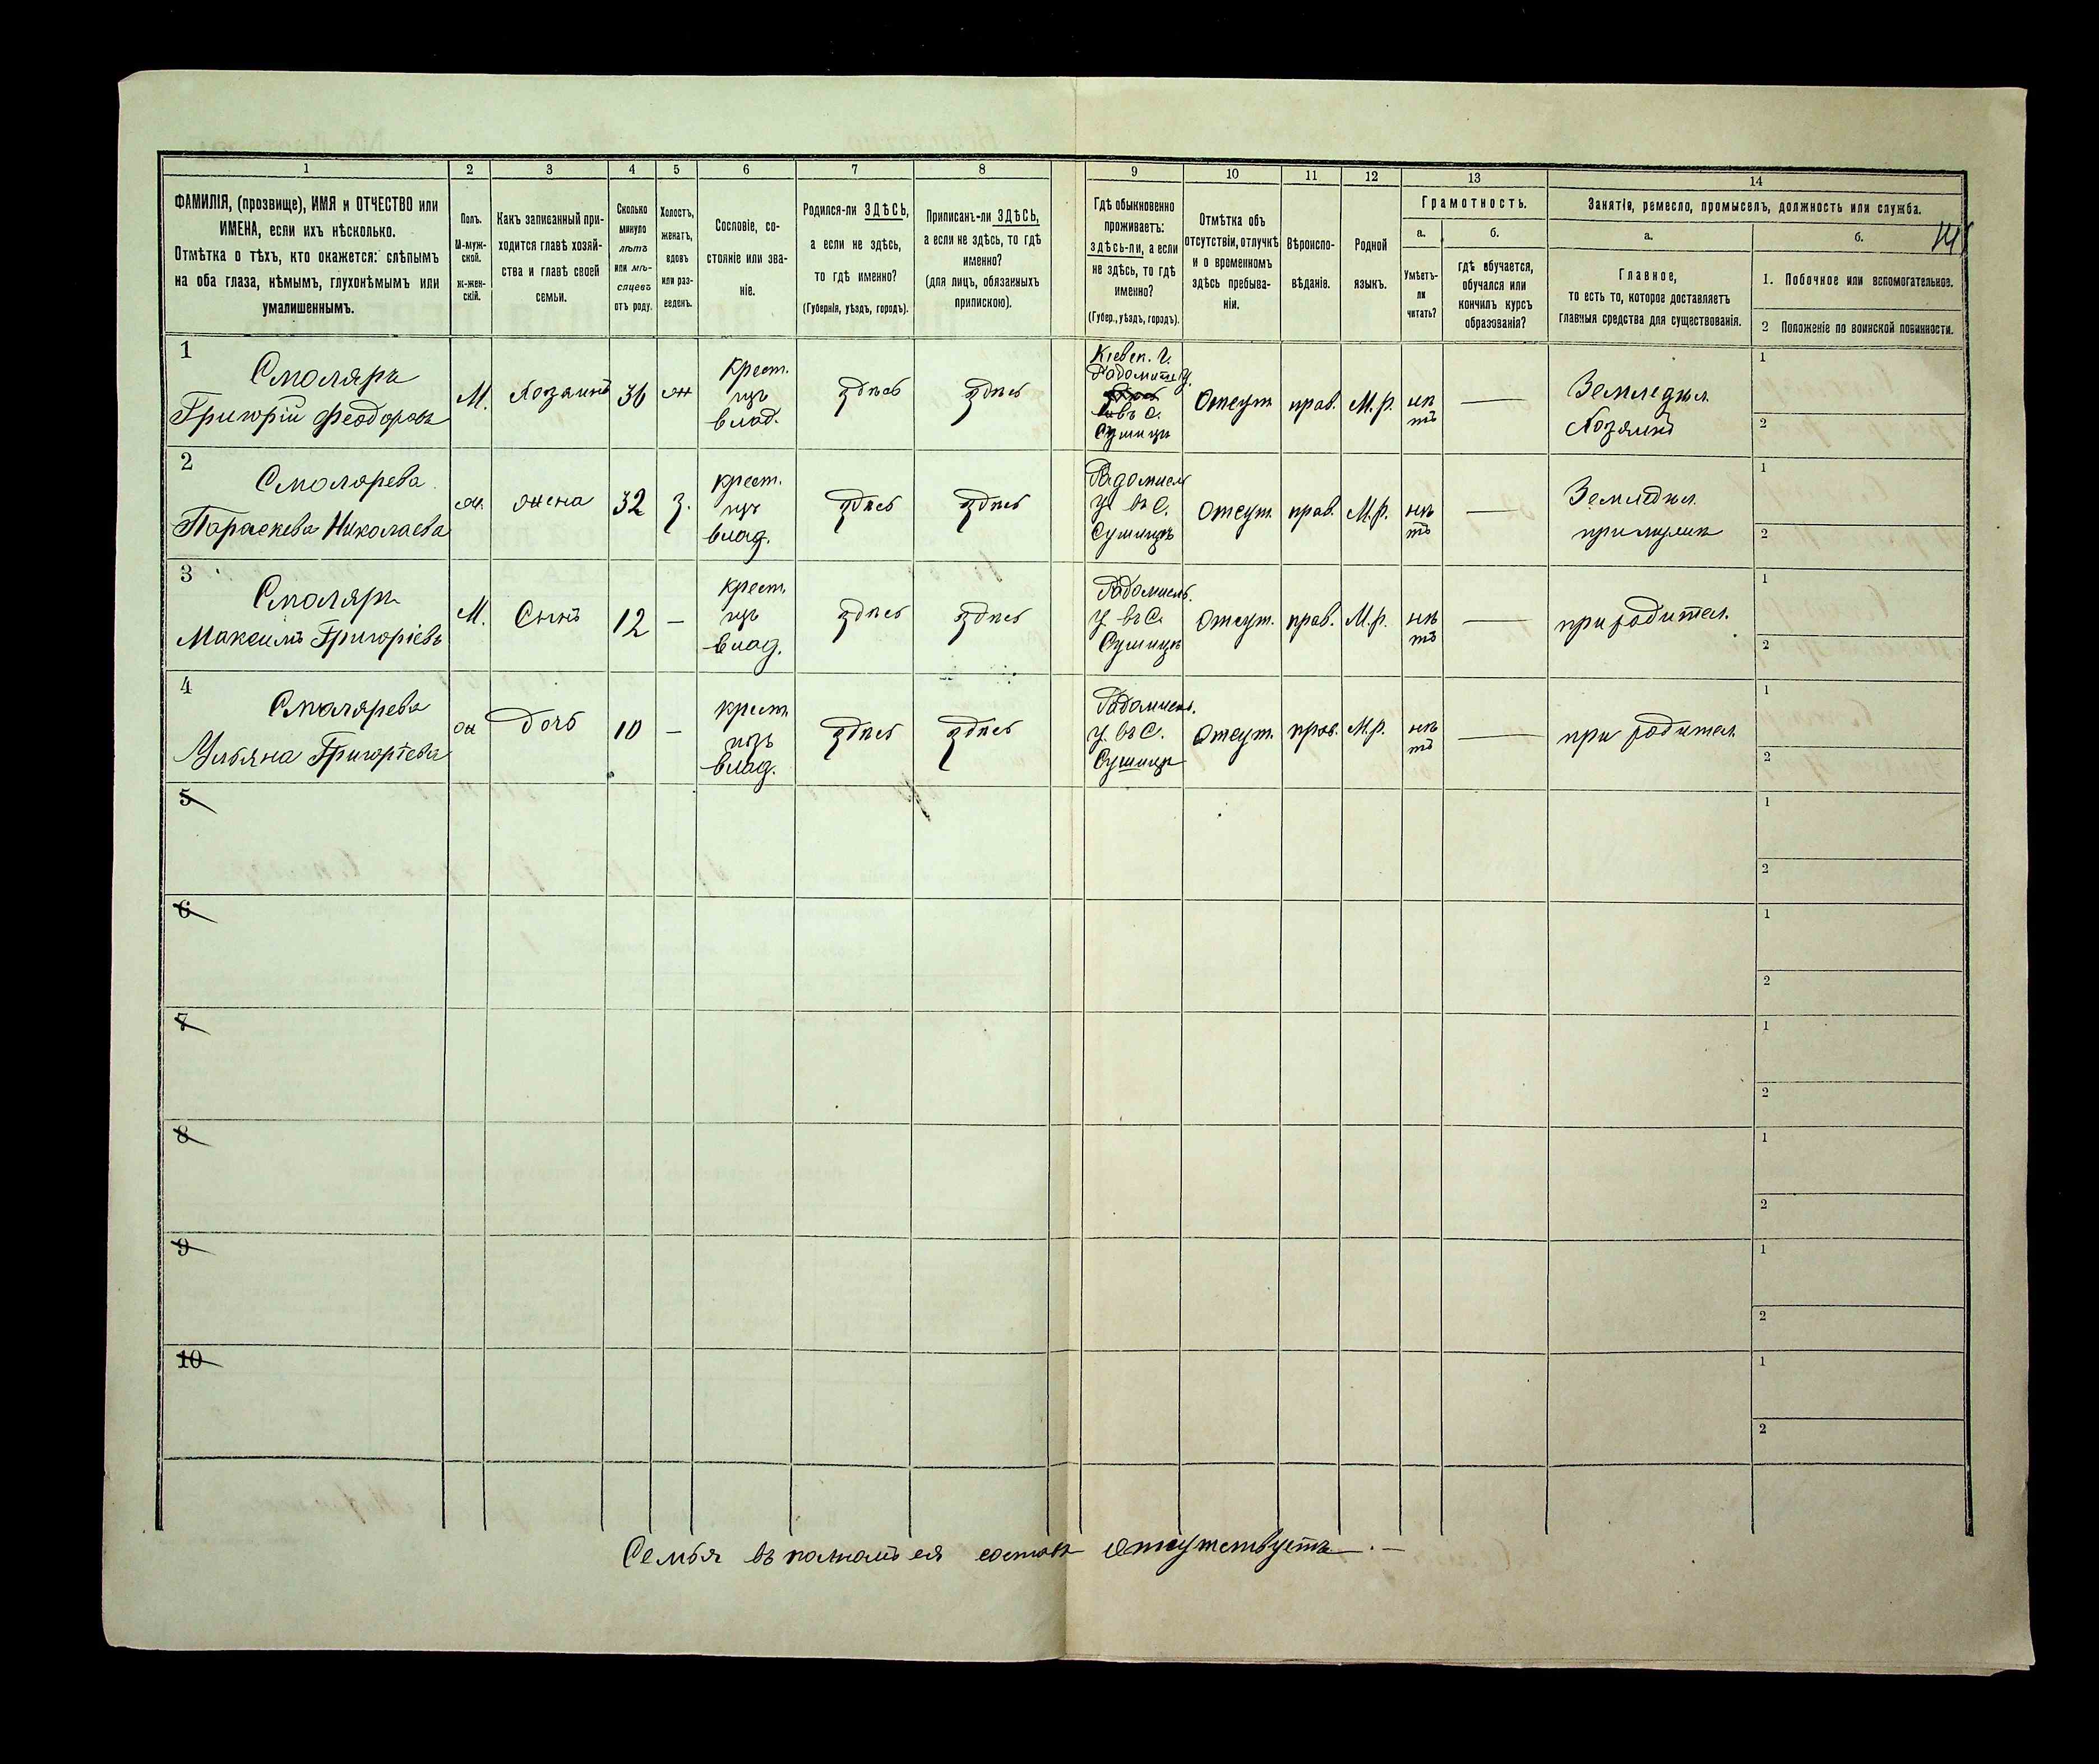 1 2 3 4 5 6 7 8 9 10 11 12 13 14
ФАМИЛІЯ, (прозвище), ИМЯ и ОТЧЕСТВО или
ИМЕНА, если ихъ нѣсколько.
Отмѣтка о тѣхъ, кто окажется: слѣпымъ
на оба глаза, нѣмымъ, глухонѣмымъ или
умалишеннымъ.
Полъ.
М-муж-
ской.
Ж-жен-
скій.
Какъ записанный при-
ходится главѣ хозяй-
ства и главѣ своей
семьи.
Сколько
минуло
лѣтъ
или мѣ-
сяцевъ
отъ роду.
Холостъ,
женатъ,
вдовъ
или раз-
веденъ.
Сословіе, со-
стояніе или зва-
ніе.
Родился-ли ЗДѢСЬ,
а если не здѣсь,
то гдѣ именно?
(Губернія, уѣздъ, городъ).
Приписанъ-ли ЗДѢСЬ,
а если не здѣсь, то гдѣ
именно?
(для лицъ, обязанныхъ
припискою).
Гдѣ обыкновенно
проживаетъ:
здѣсь-ли, а если
не здѣсь, то гдѣ
именно?
(Губер., уѣздъ, городъ).
Отмѣтка объ
отсутствіи, отлучкѣ
и о временномъ
здѣсь пребыва-
ніи.
Вѣроиспо-
вѣданіе.
Родной
языкъ.
Грамотность.
а.
Умѣетъ-
ли
читать?
б.
гдѣ обучается,
обучался или
кончилъ курсъ
образованія?
Занятіе, ремесло, промыселъ, должность или служба.
а.
Главное,
то есть то, которое доставляетъ
главныя средства для существованія.
б.
1. Побочное или вспомогательное.
2 Положеніе по воинской повинности.
1
Смоляръ
Григорій Феодоровъ
М. Хозяинъ 36 ж
Крест.
изъ
влад.
здѣсь здѣсь
Кіевск. г.
Радомысл у.
въ с.
Сушицъ
Отсут. прав. М.р. нѣ
тъ
—
Земледѣл.
Хозяинъ
1
2
2
Смолярева
Параскева Николаева
ж. жена 32 з.
крест.
изъ
влад.
здѣсь здѣсь
Радомысл
у. въ с.
Сушицъ
Отсут. прав. М.р. нѣ
тъ
—
Земледѣл.
при мужѣ
1
2
3
Смоляръ
Максимъ Григоріевъ
М. Сынъ 12 —
крест.
изъ
влад.
здѣсь здѣсь
Радомысль.
у. въ с.
Сушицъ
Отсут. прав. М.р. нѣ
тъ
—
при родител.
1
2
4
Смолярева
Ульяна Григоріева
ж дочь 10 —
крест.
изъ
влад.
здѣсь здѣсь
Радомысл.
у. въ с.
Сушицъ
Отсут. прав. М.р. нѣ
тъ
—
при родител.
1
2
5
1
2
6
1
2
7
1
2
8
1
2
9
1
2
10
1
2
Семья въ полномъ ея составѣ отсутствуетъ. —